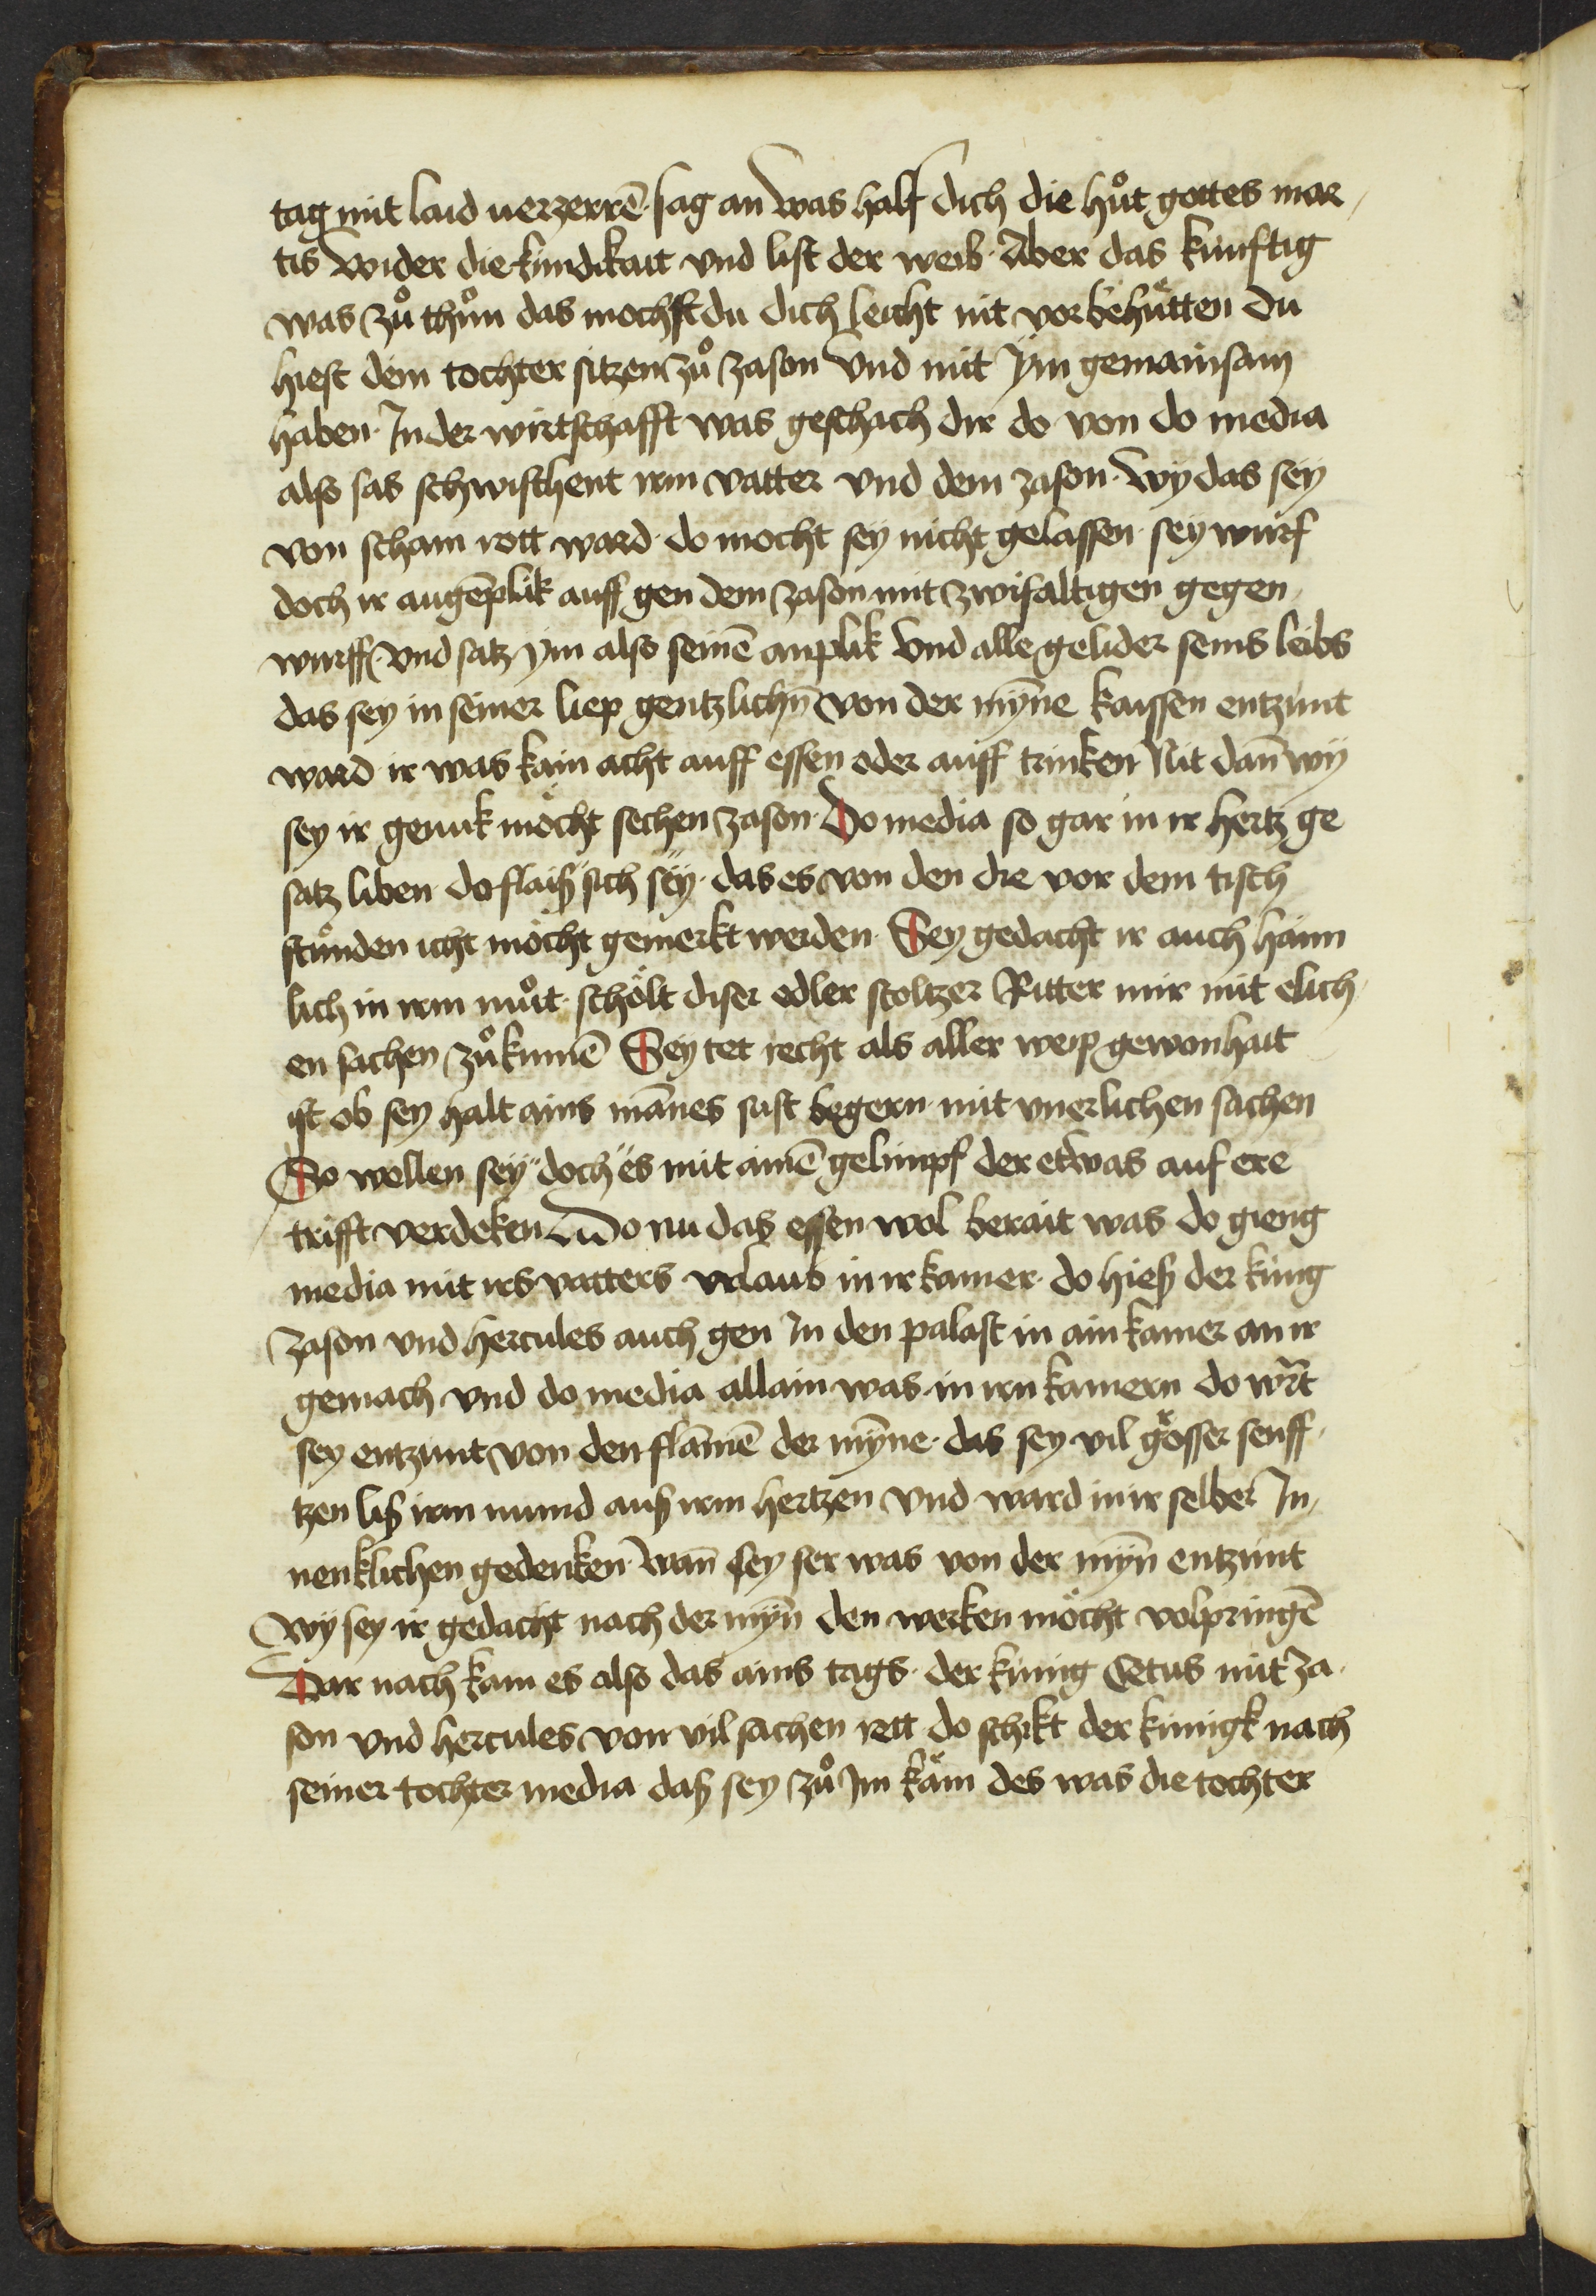 tag mit laid uerzerrē · sag an was half dich die hůt gottes mar /
tis wider die kündikait vnd list der weib · Aber das künftig
was zů thůn das mochst du dich leicht nit vorbehütten Du
hiest dein tochter sitzen zů Jason vnd mit ÿm gemainsam
haben · In der wirtschafft was geschach dir do von do media
also sas schwischent irm vatter vnd dem Jason · wy das sey
von scham rott ward · do mocht sey nicht gelassen · sey wurf
doch ir augēplik auff gen dem Jason mit zwifaltigen gegen /
wurff · vnd satz ÿm also seinē anplik vnd alle gelider seins leibs
das sey in seiner liep gentzlichn̄ von der mÿne kaissen entzunt
ward · ir was kain acht auff essen oder auff trinken Nit dan̄ wÿ
sey ir genuk möcht sechen Jason · Do media so gar in ir hertz ge
satz liben · do flaiß sich sëy · das es von den die vor dem tisch
stůnden icht möcht gemerkt werden · Sey gedacht ir auch haim
lich in irm můt · schölt diser edler stoltzer Ritter mir mit elich /
en sachen zůkumē Sey tet recht als aller weip gewonhait
ist ob sey halt ains mānes sust begern mit vnerlichen sachen
So wollen sey doch es mit aimē gelimpf der etwas auf ere
trifft verdeken Do nu das essen wol berait was do gieng
media mit irs vatters vrlaub in ir kamer · do hieß der küng
Jason vnd hercules auch gen In den palast in ain kamer an ir
gemach vnd do media allain was in irn kamern do wͬt
sey entzunt von den flāmē der mÿne · das sey vil gösser senff /
tzen liß irm mund auß irm hertzen vnd ward in ir selber In /
nenklichen gedenken · wan̄ sey ser was von der mÿn̄ entzunt
wy sey ir gedacht nach der mÿn̄ den werken möcht volpringē
Dar nach kam es also das ains tags · der künig Oetus mit Ja ·
son vnd hercules von vil sachen rett · do schikt der künigk nach
seiner tochter media daß sey zů Im käm des was die tochter